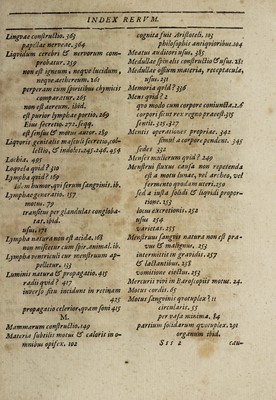 INDEX RERVM.
Linguæ constructio. 363
papillæ nerveæ. 364
Liquidum cerebri & nervorum com-
probatur. 259
non est igneum; neque lucidum,
neque æthereum. 261
perperam cum spiritibus chymicis
comparatur. 263
non est aëreum. ibid.
est purior lympha portio. 269
Ejus secretio. 272. seqq.
est sensus & motus autor. 289
Liquoris genitalis masculi secretio, col-
lectio, & indoles. 243. 246. 454
Lochia. 495
Loquela quid? 310
Lympha quid? 169
idem humor, qui serum sanguinis. ib.
Lymphæ generatio. 157
motus. 79
transitus per glandulas congloba-
tas. ibid.
usus. 171
Lympha natura non est acida. 168
non miscetur cum spir. animal. ib.
Lympha ventriculi cur menstruum ap-
pelletur. 133
Luminis natura & propagatio. 415
radii quid? 417
inverso situ incidunt in retinam
425
propagatio celerior, quam soni 415
M.
Mammarum constructio. 249
Materia subtilis motui & caloris in o-
mnibus opifex. 102
cognita fuit Aristoteli. 103
philosophis antiquioribus. 104
Meatus auditorii usus. 385
Medullæ spinalis constructio & usus. 281
Medullæ ossium materia, receptacula,
usus. 231
Memoria quid? 336
Mens quid? 2
quo modo cum corpore conjuncta. 2. 6
corpori sicut rex regno præest. 315
similis. 325. 327
Mentis operationes propriæ. 342
simul a corpore pendent. 345
sedes 332
Menses mulierum quid? 249
Menstrui fluxus causa non repetenda
est a motu lunæ, vel archeo, vel
fermento quodam uteri. 250
sed a justa solidi & liquidi propor-
tione. 253
locus excretionis. 252
usus 254
varietas. 255
Menstruus sanguis natura non est pra-
vus & malignus. 253
intermittit in gravidis. 257
& lactantibus. 258
vomitione ejectus. 253
Mercurii vivi in Baroscopiis motus. 24
Motus cordis. 65
Motus sanguinis quotuplex? 51
circularis. 55
per vasa minima. 84
partium solidarum quotuplex. 291
organum ibid.
Sss 2 cau-